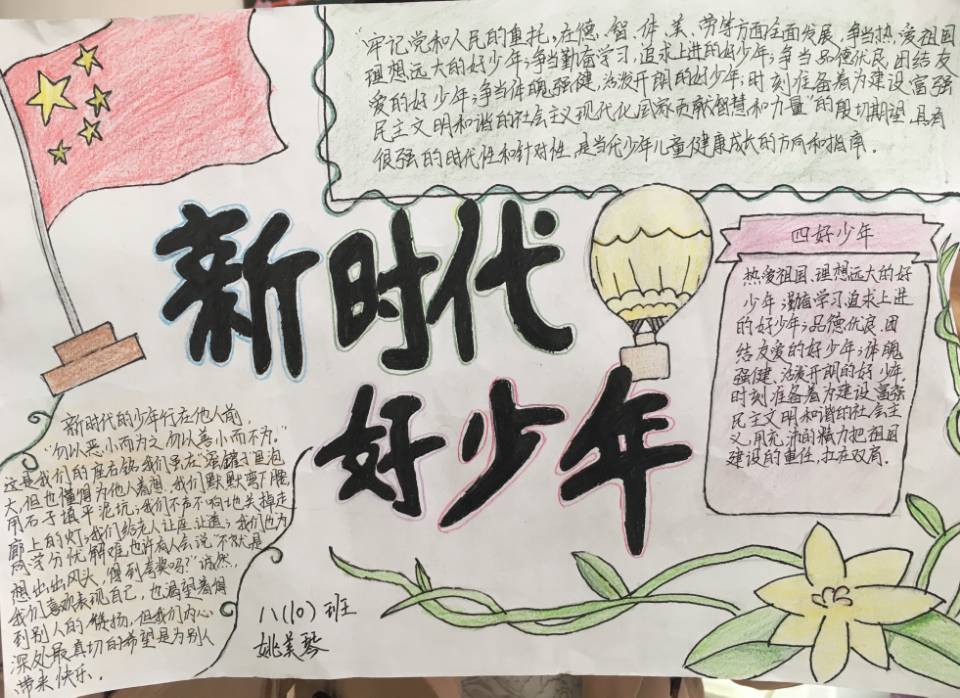 "牢记党和人民的重托,在德、智、体、美、劳等方面全面发展,争当热爱祖国
理想远大的好少年;争当勤奋学习,追求上进的好少年;争当品德优良,团结友
爱的好少年;争当体魄强健,活泼开朗的好少年;时刻准备着为建设富强
民主文明和谐的社会主义现代化国家贡献智慧和力量"的殷切期望,具有
很强的时代性和针对性,是当代少年儿童健康成长的方向和指南.
新时代
好少年
四好少年
热爱祖国、理想远大的好
少年;勤奋学习、追求上进
的好少年;品德优良、团
结友爱的好少年;体魄
强健、活泼开朗的好少年,
时刻准备着为建设富强
民主文明和谐的社会主
义,用充沛的精力把祖国
建设的重任,扛在双肩.
新时代的少年行在他人前,
"勿以恶小而为之,勿以善小而不为."
这是我们的座右铭,我们虽在"蜜罐子"里泡
大,但也懂得为他人着想.我们默默弯下腰,
用石子填平泥坑;我们不声不响地关掉走
廊上的灯;我们给老人让座让道;我们也为
同学分忧解难,也许有人会说"不就是
想出出风头,得到夸奖吗?"诚然,
我们喜欢表现自己,也渴望着得
到别人的赞扬,但我们内心
深处最真切的希望是为别人
带来快乐.
八(10)班
姚美琴